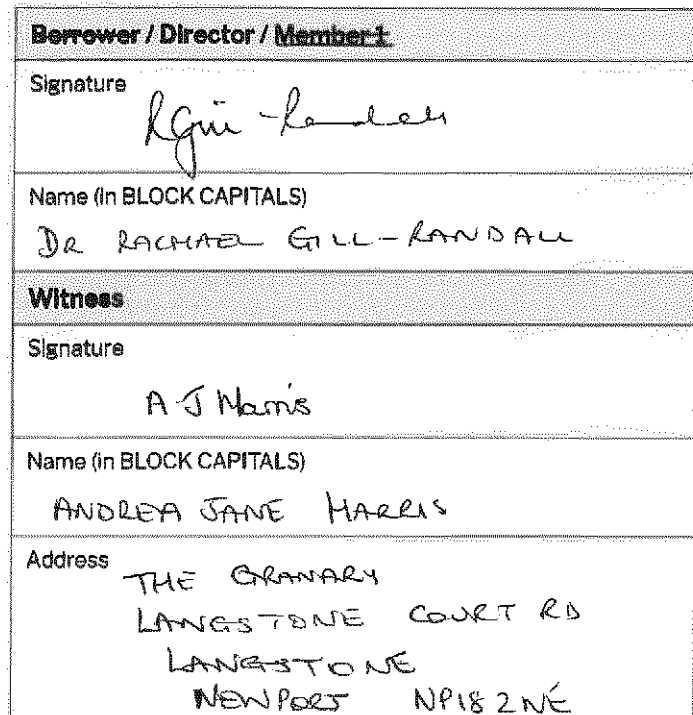 Borrower / Director / Member 1
Signature
RGill-Randall
Name (in BLOCK CAPITALS)
DR RACHAEL GILL-RANDALL
Witness
Signature
A J Harris
Name (in BLOCK CAPITALS)
ANDREA JANE HARRIS
Address
THE GRANARY
LANGSTONE COURT RD
LANGSTONE
NEWPORT NP18 2NE